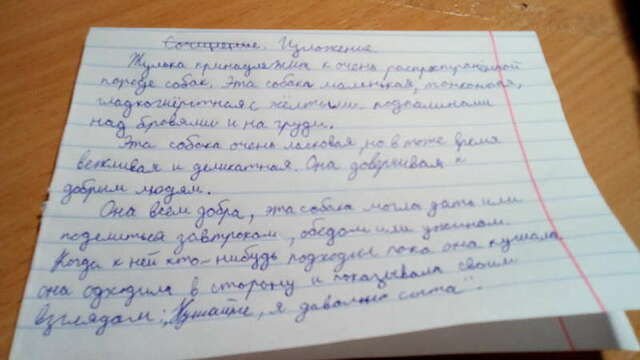 Сочинение. Изложение.
Жулька принадлежит к очень распространённой
породе собак. Эта собака маленькая, тонконогая,
гладкошёрстная с жёлтыми подпалинами
над бровями и на груди.
Эта собака очень ласковая, но в тоже время
вежливая и деликатная. Она доверчивая к
добрым людям.
Она всем добра, эта собака могла дать или
поделиться завтроком, обедом или ужином.
Когда к ней кто-нибудь подходил пока она кушала
она одходила в сторону и показывала своим
взглядом: "Кушайте, я давольно сыта".